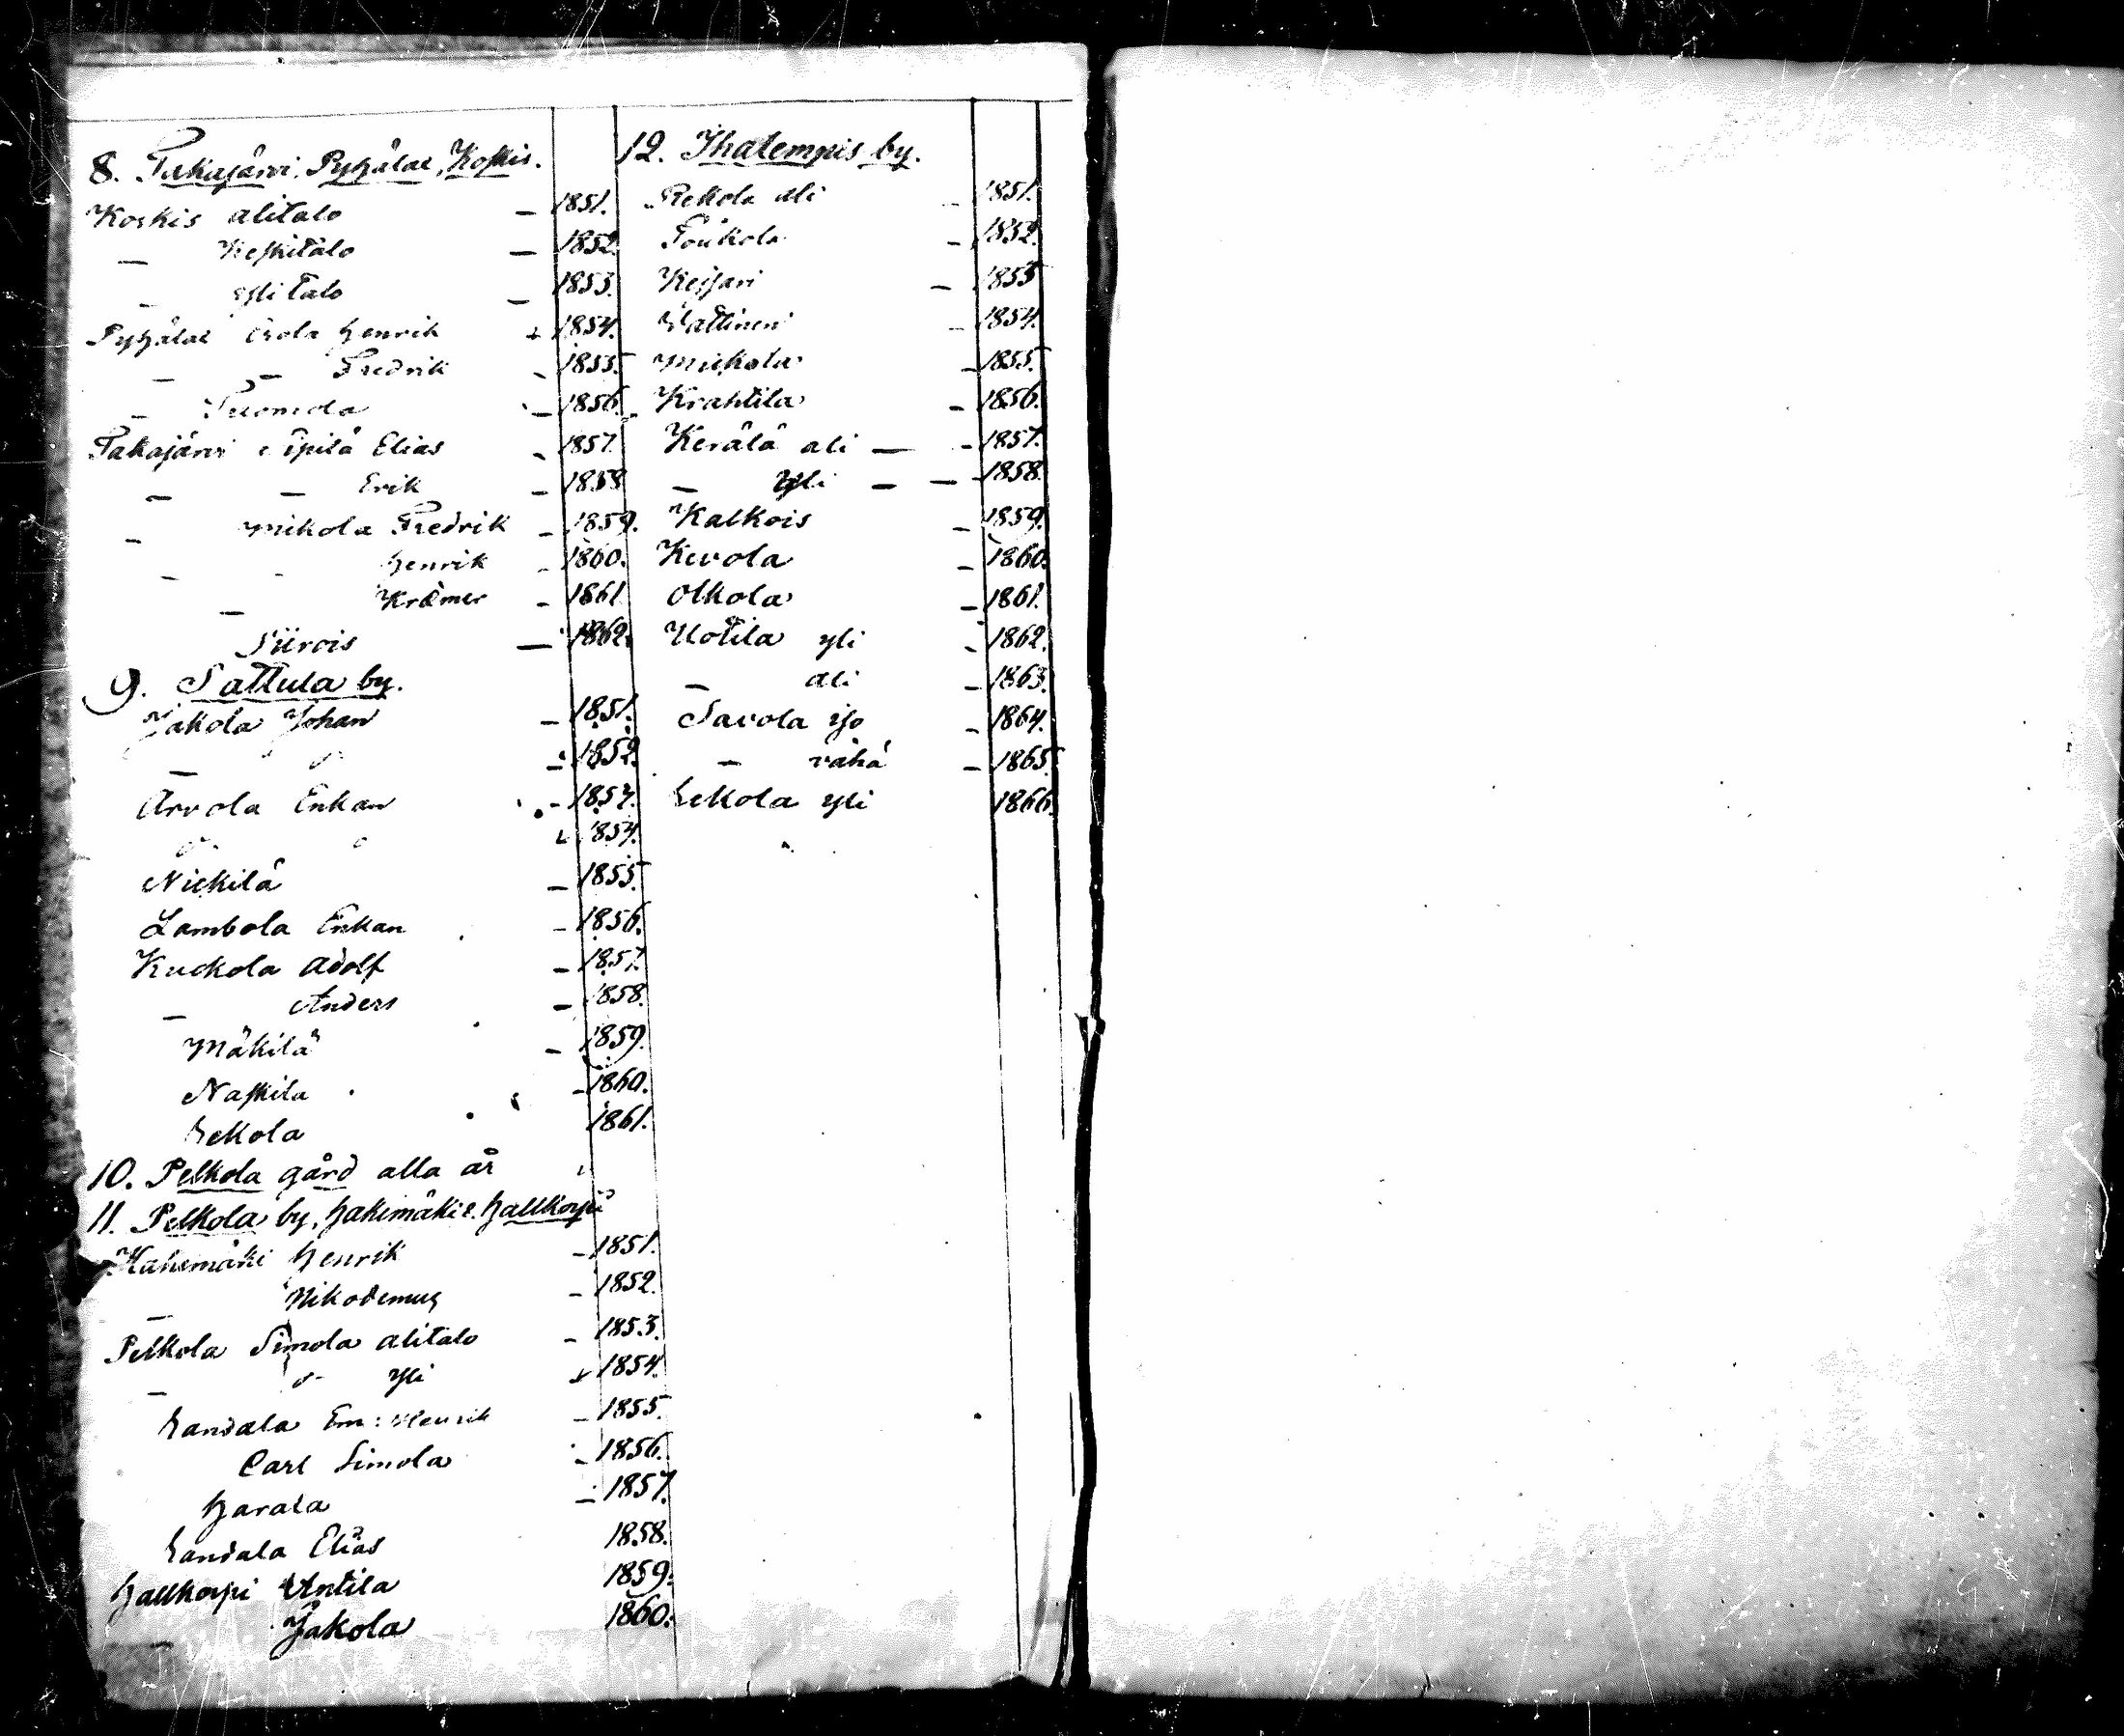 8. Takajärvi, Pyhälae, Koskis.
Koskis alitalo — 1851.
— Keskitalo — 1852.
— Ylitalo — 1853.
Pyhälae Erola Henrik 1854.
— — Fredrik — 1855.
— Tuomola — 1856.
Takajärvi Elias 1857.
— — Erik — 1858
— Mikola Fredrik — 1859.
— - Henrik — 1860.
— Krämer — 1861.
Siirois — 1862.
9. Sattula by.
Jakola Johan — 1851.
— — 1852.
Arvola Enkan — 1853.
1854.
Nickilä — 1855.
Lambola Enkan — 1856.
Kuckola Adolf — 1857.
— Anders — 1858.
Mäkilä — 1859.
Naskila — 1860.
Lekola 1861.
10. Pelkola gård alla år
11. Pelkola by, Hakimäki & Hallkorpi
Hakimäki Henrik — 1851.
— Nikodemus — 1852.
Pelkola Simola alitalo — 1853.
— yli 1854.
Landala Em: Henrik — 1855.
Carl Simola — 1856.
Harala — 1857.
Landala Elias 1858.
Hallkorpi Antila 1859.
— Jakola 1860.
12. Ihalempis by.
Rekola ali — 1851.
Toukola — 1852.
Keijsari — 1853
Lattinen — 1854.
Mickola — 1855.
Krahtila — 1856.
Kerälä ali — — 1857.
— Yli — — 1858.
Kalkois — 1859.
Kevola — 1860.
Olkola — 1861.
Uotila yli — 1862.
— ali — 1863.
Savola iso — 1864.
— vähä — 1865.
Lekola yli 1866.